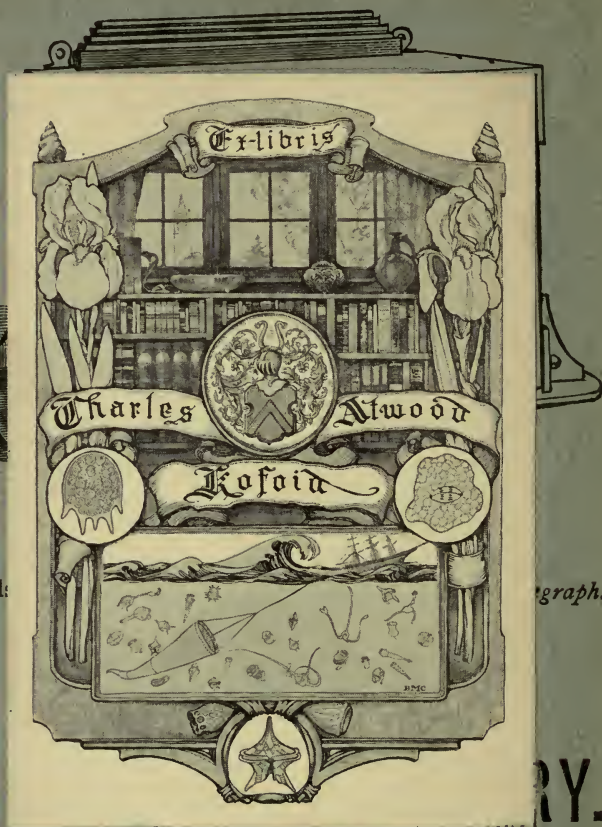 Ex-libris
Charles Atwood
Kofoid
BMC
egraph.
RY.